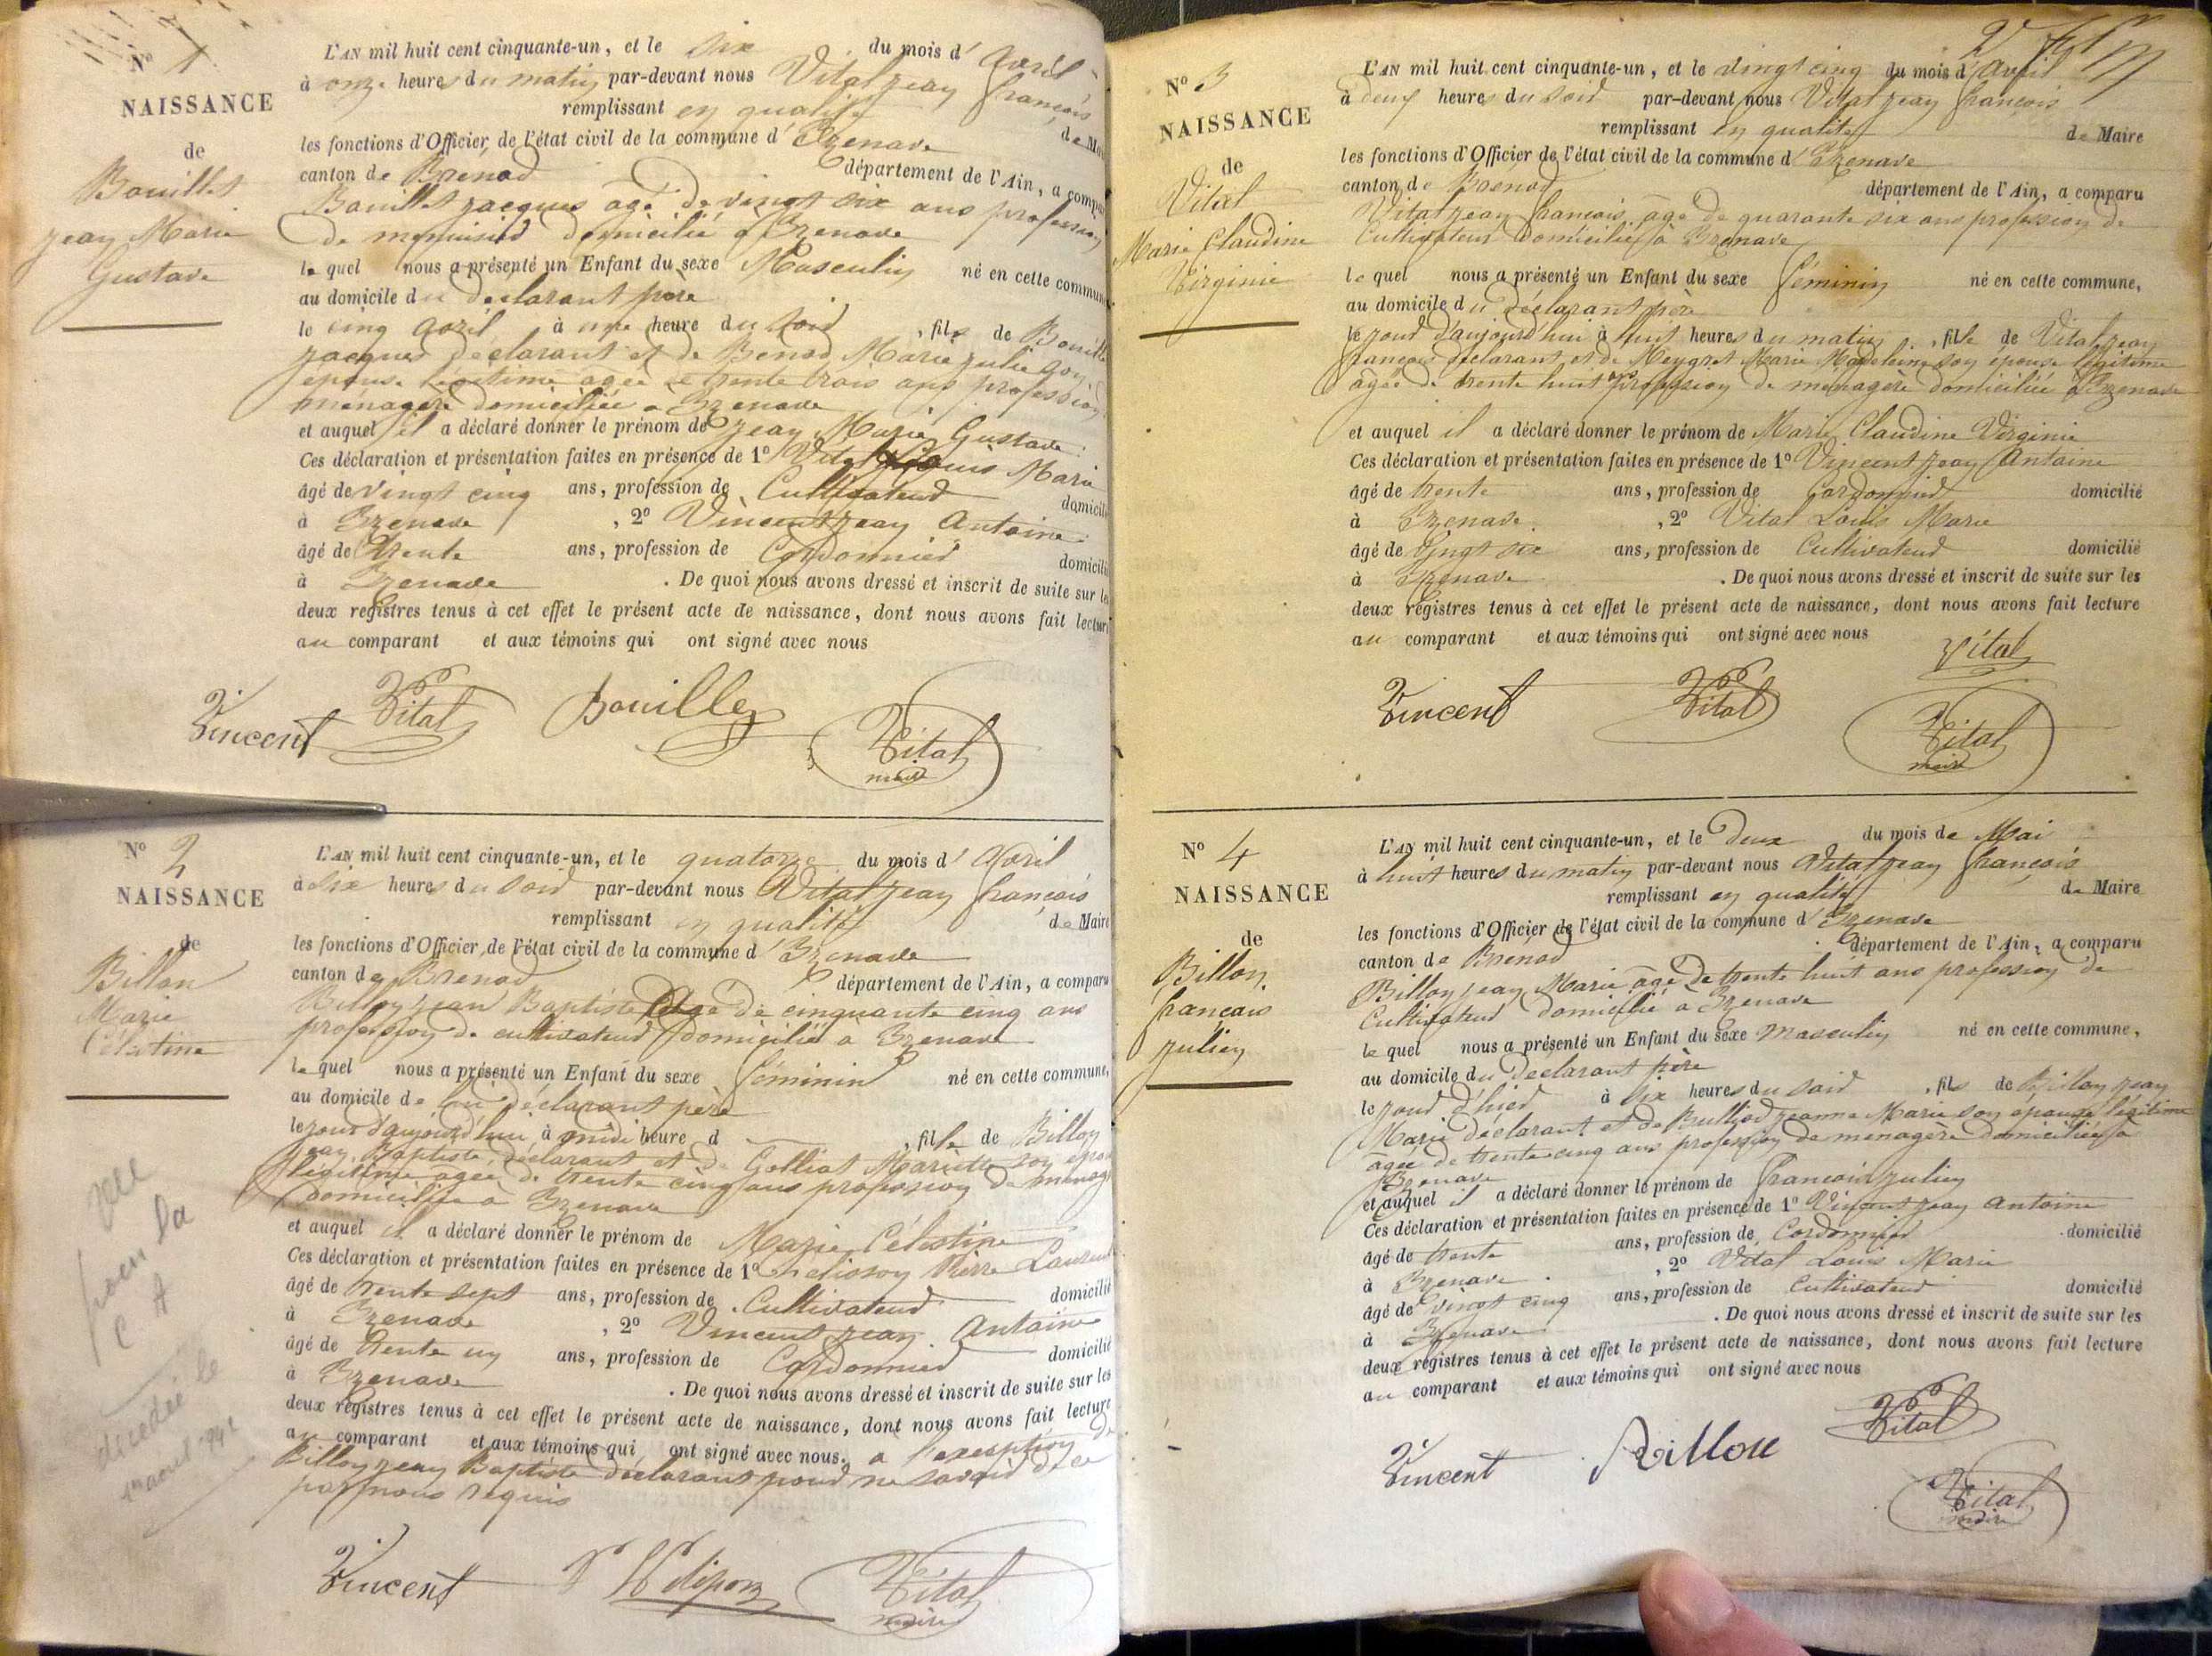 N° 1
NAISSANCE
de
Bouillet
Jean Marie
Gustave
L'AN mil huit cent cinquante-un, et le six du mois d'avril
à onze heures du matin par-devant nous Vital Jean François
remplissant en qualité de Ma
les fonctions d'Officier de l'état civil de la commune d'Izenave
canton de Brénod département de l'Ain, a compa
Bouillet Jacques agé de vingt six ans profession
de menuisier domicilié a Izenave
le quel nous a présenté un Enfant du sexe Masculin né en cette commune
au domicile du declarant père
le cinq avril à une heure du soir, fils de Bouille
Jacques déclarant et de Benod Marie Julie son
épouse légitime agée de trente trois ans profession
ménagère domiciliée a Izenave
et auquel il a déclaré donner le prénom de Jean Marie Gustave
Ces déclaration et présentation faites en présence de 1° Vital Louis Marie
âgé de vingt cinq ans, profession de Cultivateur domicilié
à Izenave, 2° Vincent Jean Antoine
âgé de trente ans, profession de Cordonnier domicilié
à Izenave. De quoi nous avons dressé et inscrit de suite sur les
deux registres tenus à cet effet le présent acte de naissance, dont nous avons fait lecture
au comparant et aux témoins qui ont signé avec nous
Vincent Vital Bouillet Vital
maire
N° 2
NAISSANCE
de
Billon
Marie
Célestine
L'AN mil huit cent cinquante-un, et le quatorze du mois d'avril
à six heures du soir par-devant nous Vital Jean François
remplissant en qualité de Maire
les fonctions d'Officier de l'état civil de la commune d'Izenave
canton de Brenod département de l'Ain, a comparu
Billon Jean Baptiste agé de cinquante cinq ans
profession de cultivateur domicilié a Izenave
le quel nous a présenté un Enfant du sexe féminin né en cette commune,
au domicile de lui déclarant père
le jour d'aujourd'hui à midi heure d, fille de Billon
Jean Baptiste déclarant et de Golliat Mariette son épou
légitime agée de trente cinq ans profession de ménag
domiciliée a Izenave
et auquel il a déclaré donner le prénom de Marie Célestine
Ces déclaration et présentation faites en présence de 1° Pierre Laurent
âgé de trente sept ans, profession de Cultivateur domicilié
à Izenave, 2° Vincent Jean Antoine
âgé de trente un ans, profession de Cordonnier domicilié
à Izenave. De quoi nous avons dressé et inscrit de suite sur les
deux registres tenus à cet effet le présent acte de naissance, dont nous avons fait lecture
au comparant et aux témoins qui ont signé avec nous. a l'exception de
Billon Jean Baptiste déclarant pour ne savoir de ce
par nous requis
la
décédée le
août
Vincent Vital
maire
N° 3
NAISSANCE
de
Vital
Marie Claudine
Virginie
L'AN mil huit cent cinquante-un, et le vingt cinq du mois d'avril
à deux heures du soir par-devant nous Vital Jean François
remplissant en qualité de Maire
les fonctions d'Officier de l'état civil de la commune d'Izenave
canton de Brenod département de l'Ain, a comparu
Vital Jean François, âgé de quarante six ans profession de
Cultivateur domicilié à Izenave
le quel nous a présenté un Enfant du sexe féminin né en cette commune,
au domicile du déclarant père
le jour d'aujourd'hui à huit heures du matin, fille de Vital Jean
François déclarant, et de Meygret Marie Madeleine son épouse légitime
âgée de trente huit ans profession de ménagère domiciliée a Izenave
et auquel il a déclaré donner le prénom de Marie Claudine Virginie
Ces déclaration et présentation faites en présence de 1° Vincent Jean Antoine
âgé de trente ans, profession de Cordonnier domicilié
à Izenave, 2° Vital Louis Marie
âgé de vingt six ans, profession de Cultivateur domicilié
à Izenave. De quoi nous avons dressé et inscrit de suite sur les
deux registres tenus à cet effet le présent acte de naissance, dont nous avons fait lecture
au comparant et aux témoins qui ont signé avec nous
Vital
Vincent Vital Vital
maire
N° 4
NAISSANCE
de
Billon
françois
Julien
L'AN mil huit cent cinquante-un, et le deux du mois de Mai
à huit heures du matin par-devant nous Vital Jean François
remplissant en qualité de Maire
les fonctions d'Officier de l'état civil de la commune d'Izenave
canton de Brénod département de l'Ain, a comparu
Billon Jean Marie âgé de trente huit ans profession de
Cultivateur domicilié a Izenave
le quel nous a présenté un Enfant du sexe masculin né en cette commune,
au domicile du déclarant père
le jour d'hier à six heures du soir, fils de Billon Jean
Marie déclarant et de Brulliod Jeanne Marie son épouse légitime
âgée de trente cinq ans profession de ménagère domiciliée à
Izenave
et auquel il a déclaré donner le prénom de François Julien
Ces déclaration et présentation faites en présence de 1° Vincent Jean Antoine
âgé de trente ans, profession de Cordonnier domicilié
à Izenave, 2° Vital Louis Marie
âgé de vingt cinq ans, profession de Cultivateur domicilié
à Izenave. De quoi nous avons dressé et inscrit de suite sur les
deux registres tenus à cet effet le présent acte de naissance, dont nous avons fait lecture
au comparant et aux témoins qui ont signé avec nous
Vital
Vincent Billon
Vital
maire